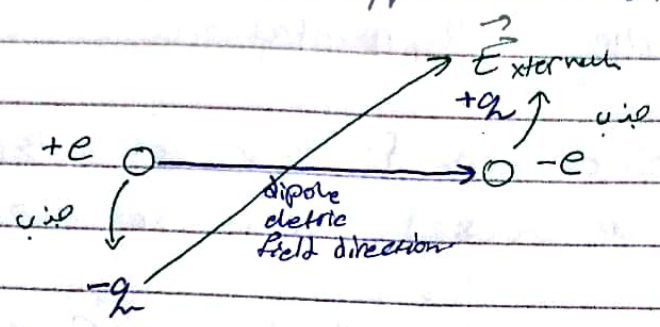 E xternal
+q
جذب
+e
-e
dipole
eletric
field direction
جذب
-q